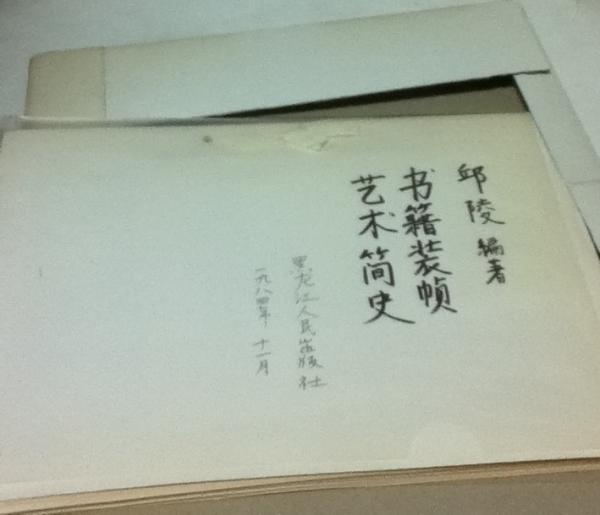 邱陵 编著
书籍装帧
艺术简史
黑龙江人民出版社
一九八四年·十一月